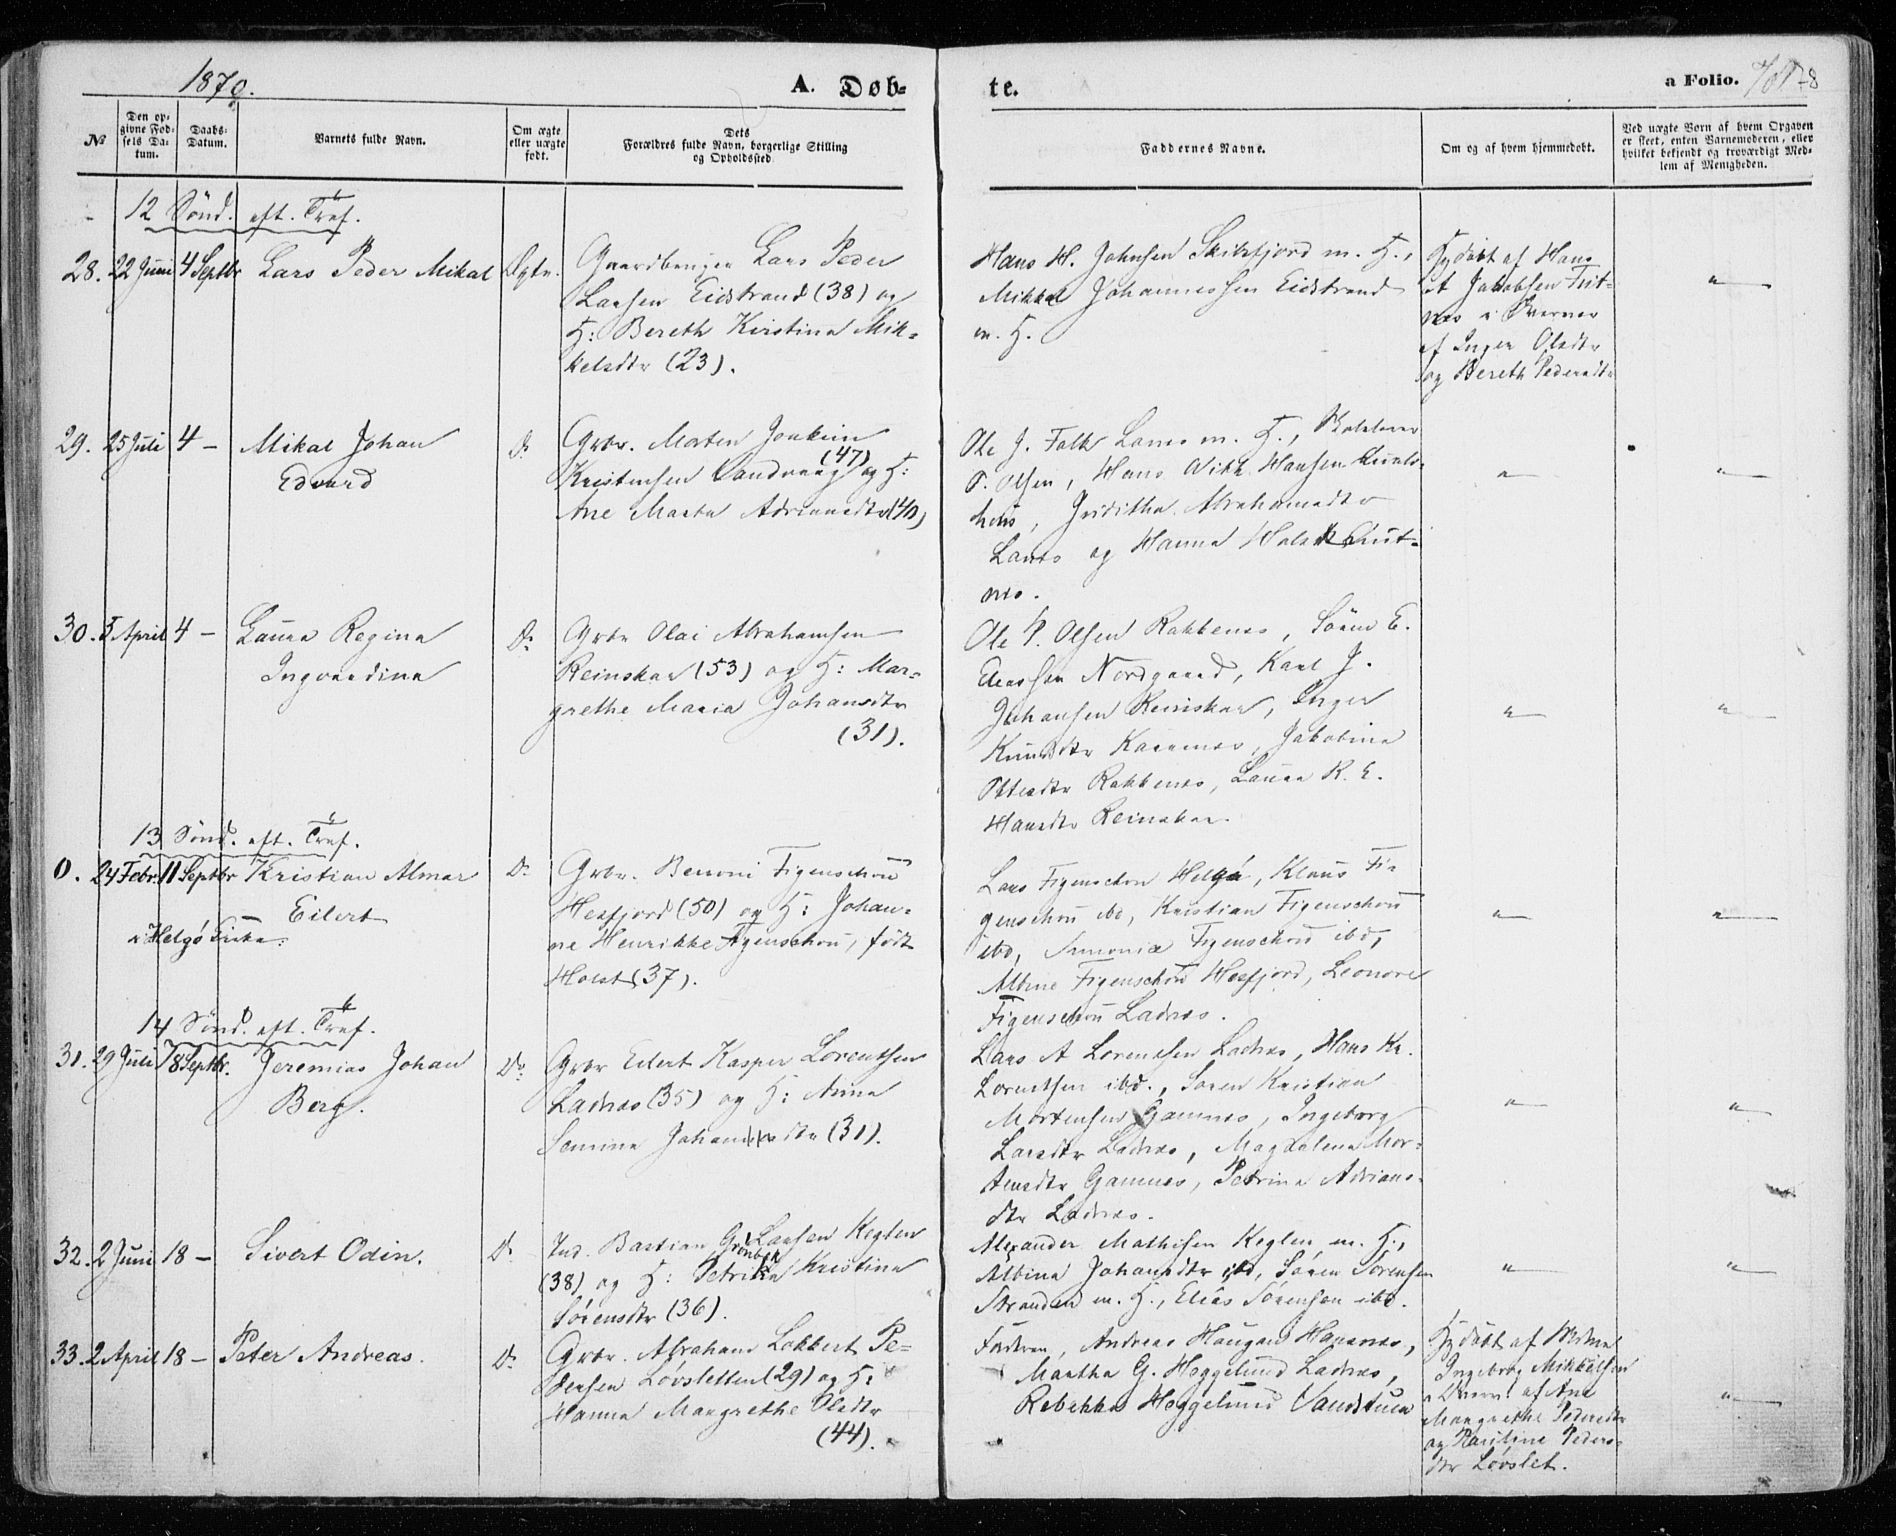 1870.
A. Døb-
te.
a Folio. 78
№
Den op-
givne Fød-
sels Da-
tum.
Daabs-
Datum.
Barnets fulde Navn.
Om ægte
eller uægte
født.
Dets
Forældres fulde Navn, borgerlige Stilling
og Opholdssted
Faddernes Navne.
Om og af hvem hjemmedøbt.
Ved uægte Børn af hvem Opgaven
er skeet, enten Barnemoderen, eller
hvilket bekjendt og troværdigt Med-
lem af Menigheden.
12 Sønd. eft. Tref.
28. 22 Juni 4 Septbr Lars Peder Mikal Ægte.
Gaardbruger Lars Peder
Larsen Eidstrand (38) og
H: Bereth Kirstina Mik-
kelsdtr (23).
Hans H. Johnsen Skibsfjord m. H.,
Mikkal Johannessen Eidstrand
m. H.
Hjdøbt af Hans
Jakobsen
af Inger Olsdtr
og Bereth Pedersdtr
"
29. 25 Juli 4 – Mikal Johan
Edvard
Do
Grbr. Morten Joakim
Kristensen Vandvaag (47) og H:
Ane Marta Adriansdtr (40)
Ole J. Falk Lanes m. H., Skolelærer
P. Olsen, Hans Nikl. Hansen
Abrahamsdtr
Lanes og Hanna
nes.
"
"
30. 5 April 4 – Laura Regina
Ingvardina
Do
Grbr Olai Abrahamsen
Reinskar (53) og H: Mar-
grethe Maria Johansdtr
(31).
Ole P. Olsen Rakkenes, Sören E.
Eliassen Nordgaard, Karl J.
Johansen Reinskar, Inger
Knudsdtr Karanes, Jakobine
Ottesdtr Rakkenes, Laura R. E.
Hansdtr Reinskar.
"
"
13 Sønd. eft. Tref.
0. 24 Febr. 11 Septbr Kristian Almar
Eilert
i Helgø Kirke.
Do
Grbr. Benoni Figenschou
Hesfjord (50) og H: Johan-
ne Henrikke Figenschou, født
Holst (37).
Lars Figenschou Helgø, Klaus Fi-
genschou ibd, Kristian Figenschou
ibd, Figenschou ibd,
Albine Figenschou Hesfjord, Leonore
Figenschou Ladnes.
"
"
14 Sønd. eft. Tref.
31. 29 Juli 18 Septbr. Jeremias Johan
Berg.
Do
Grbr Eilert Kasper Lorentsen
Ladnes (35) og H: Anna
Semine Johansdtr (31).
Lars A Lorentsen Ladnes, Hans Kr.
Lorentsen ibd., Søren Kristian
Mortensen Gamnes, Ingeborg
Larsdtr Ladnes, Magdalena Mor-
tensdtr Gamnes, Petrina Adrians-
dtr Ladnes.
"
"
32. 2 Juni 18 – Sivert Odin.
Do
Ind. Bastian Grønbek Larsen Keglen
(38) og H: Petrikka Kristina
Sørensdtr (36).
Alexander Mathisen Keglen m. H.,
Albina Johansdtr ibd, Søren Sørensen
Stranden m. H., Elias Sørensen ibd.
"
"
33. 2 April 18 – Peter Andreas.
Do
Grbr. Abraham Lokkert Pe-
dersen Løvsletten (29) og H:
Hanna Margrethe Olsdtr
(44).
Faderen, Andreas Haugan Hansnes,
Martha G. Heggelund Ladnes,
Rebekka Heggelund Vandstuen
Hjdøbt af
Ingeborg Mikkelsen
af Ane
Margrethe Pedersdtr
og Pauline Peders-
dtr Løvslet.
"